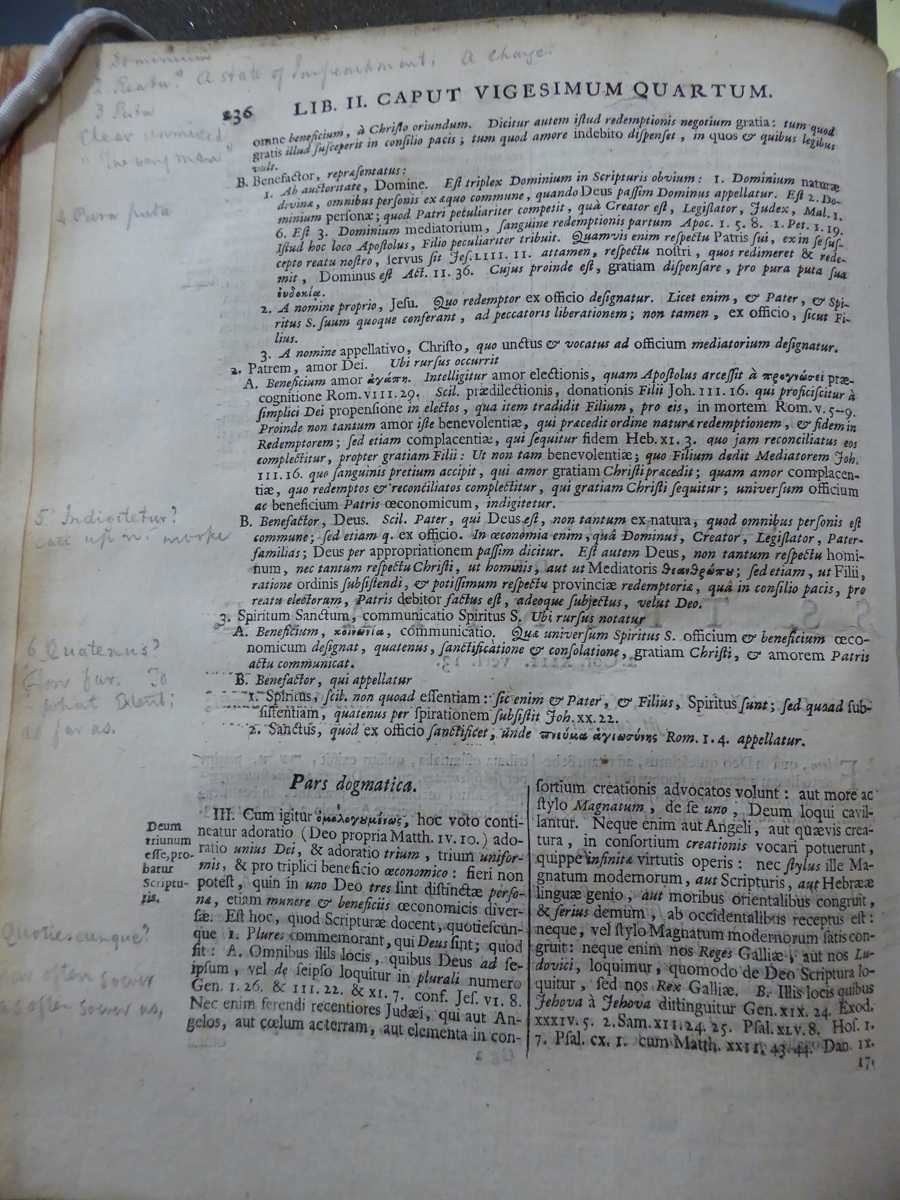 1 Dominium
2 Reatu? A state of Impeachment; A charge.
3 Puta
Clear unmixed
"The very man"
4 Pura puta
5 Indigitetur?
call upon. invoke
6 Quatenus?
How far. To
what Extent;
as far as.
Quotiescunque?
as often soever
as often soever as,
236 LIB. II. CAPUT VIGESIMUM QUARTUM.
omne beneficium, à Christo oriundum. Dicitur autem istud redemptionis negotium gratia: tum quod
gratis illud susceperit in consilio pacis; tum quod amore indebito dispenset, in quos & quibus legibus
vult.
B. Benefactor, repræsentatus:
1. Ab auctoritate, Domine. Est triplex Dominium in Scripturis obvium: 1. Dominium naturæ
divinæ, omnibus personis ex æquo commune, quando Deus passim Dominus appellatur. Est 2. Do-
minium personæ; quod Patri peculiariter competit, quà Creator est, Legislator, Judex, Mal. 1.
6. Est 3. Dominium mediatorium, sanguine redemptionis partum Apoc. 1. 5. 8. 1. Pet. 1. 19.
Istud hoc loco Apostolus, Filio peculiariter tribuit. Quamvis enim respectu Patris sui, ex in se sus-
cepto reatu nostro, servus sit Jes. LIII. 11. attamen, respectu nostri, quos redimeret & rede-
mit, Dominus est Act. 11. 36. Cujus proinde est, gratiam dispensare, pro pura puta sua
ἐυδοκίᾳ.
2. A nomine proprio, Jesu. Quo redemptor ex officio designatur. Licet enim, & Pater, & Spi-
ritus S. suum quoque conferant, ad peccatoris liberationem; non tamen, ex officio, sicut Fi-
lius.
3. A nomine appellativo, Christo, quo unctus & vocatus ad officium mediatorium designatur.
2. Patrem, amor Dei. Ubi rursus occurrit
A. Beneficium amor ἀγάπη. Intelligitur amor electionis, quam Apostolus arcessit à προγνώσει præ-
cognitione Rom. VIII. 29. Scil. prædilectionis, donationis Filii Joh. III. 16. qui proficiscitur à
simplici Dei propensione in electos, qua item tradidit Filium, pro eis, in mortem Rom. v. 5-9.
Proinde non tantum amor iste benevolentiæ, qui præcedit ordine naturæ redemptionem, & fidem in
Redemptorem; sed etiam complacentiæ, qui sequitur fidem Heb. XI. 3. quo jam reconciliatus eos
complectitur, propter gratiam Filii: Ut non tam benevolentiæ; quo Filium dedit Mediatorem Joh.
III. 16. quo sanguinis pretium accipit, qui amor gratiam Christi præcedit; quam amor complacen-
tiæ, quo redemptos & reconciliatos complectitur, qui gratiam Christi sequitur; universum officium
ac beneficium Patris œconomicum, indigitetur.
B. Benefactor, Deus. Scil. Pater, qui Deus est, non tantum ex natura, quod omnibus personis est
commune; sed etiam q. ex officio. In œconomia enim, quà Dominus, Creator, Legislator, Pater-
familias; Deus per appropriationem passim dicitur. Est autem Deus, non tantum respectu homi-
num, nec tantum respectu Christi, ut hominis, aut ut Mediatoris θεανθρώπου; sed etiam, ut Filii,
ratione ordinis subsistendi, & potissimum respectu provinciæ redemptoriæ, quà in consilio pacis, pro
reatu electorum, Patris debitor factus est, adeoque subjectus, velut Deo.
3. Spiritum Sanctum, communicatio Spiritus S. Ubi rursus notatur
A. Beneficium, κοινωνία, communicatio. Quæ universum Spiritus S. officium & beneficium œco-
nomicum designat, quatenus, sanctificatione & consolatione, gratiam Christi, & amorem Patris
actu communicat.
B. Benefactor, qui appellatur
1. Spiritus, scil. non quoad essentiam: sic enim & Pater, & Filius, Spiritus sunt; sed quoad sub-
sistentiam, quatenus per spirationem subsistit Joh. XX. 22.
2. Sanctus, quod ex officio sanctificet, unde πνεῦμα ἁγιωσύνης Rom. 1. 4. appellatur.
Pars dogmatica.
Deum
triunum
esse, pro-
batur
Scriptu-
ris.
III. Cum igitur ὁμολογουμένως, hoc voto conti-
neatur adoratio (Deo propria Matth. IV. 10.) ado-
ratio unius Dei, & adoratio trium, trium unifor-
mis, & pro triplici beneficio œconomico: fieri non
potest, quin in uno Deo tres sint distinctæ perso-
næ, etiam munere & beneficiis œconomicis diver-
sæ. Est hoc, quod Scripturæ docent, quotiescun-
que 1. Plures commemorant, qui Deus sint; quod
fit: A. Omnibus illis locis, quibus Deus ad se-
ipsum, vel de seipso loquitur in plurali numero
Gen. 1. 26. & III. 22. & XI. 7. conf. Jes. VI. 8.
Nec enim ferendi recentiores Judæi, qui aut An-
gelos, aut cœlum ac terram, aut elementa in con-
sortium creationis advocatos volunt: aut more ac
stylo Magnatum, de se uno, Deum loqui cavil-
lantur. Neque enim aut Angeli, aut quævis crea-
tura, in consortium creationis vocari potuerunt,
quippe infinitæ virtutis operis: nec stylus ille Ma-
gnatum modernorum, aut Scripturis, aut Hebrææ
linguæ genio, aut moribus orientalibus congruit,
& serius demum, ab occidentalibus receptus est:
neque, vel stylo Magnatum modernorum satis con-
gruit: neque enim nos Reges Galliæ, aut nos Lu-
dovici, loquimur, quomodo de Deo Scriptura lo-
quitur, sed nos Rex Galliæ. B. Illis locis quibus
Jehova à Jehova distinguitur Gen. XIX. 24. Exod.
XXXIV. 5. 2. Sam. XII. 24. 25. Psal. XLV. 8. Hos. 1.
7. Psal. CX. 1. cum Matth. XXII. 43. 44. Dan. IX.
17.